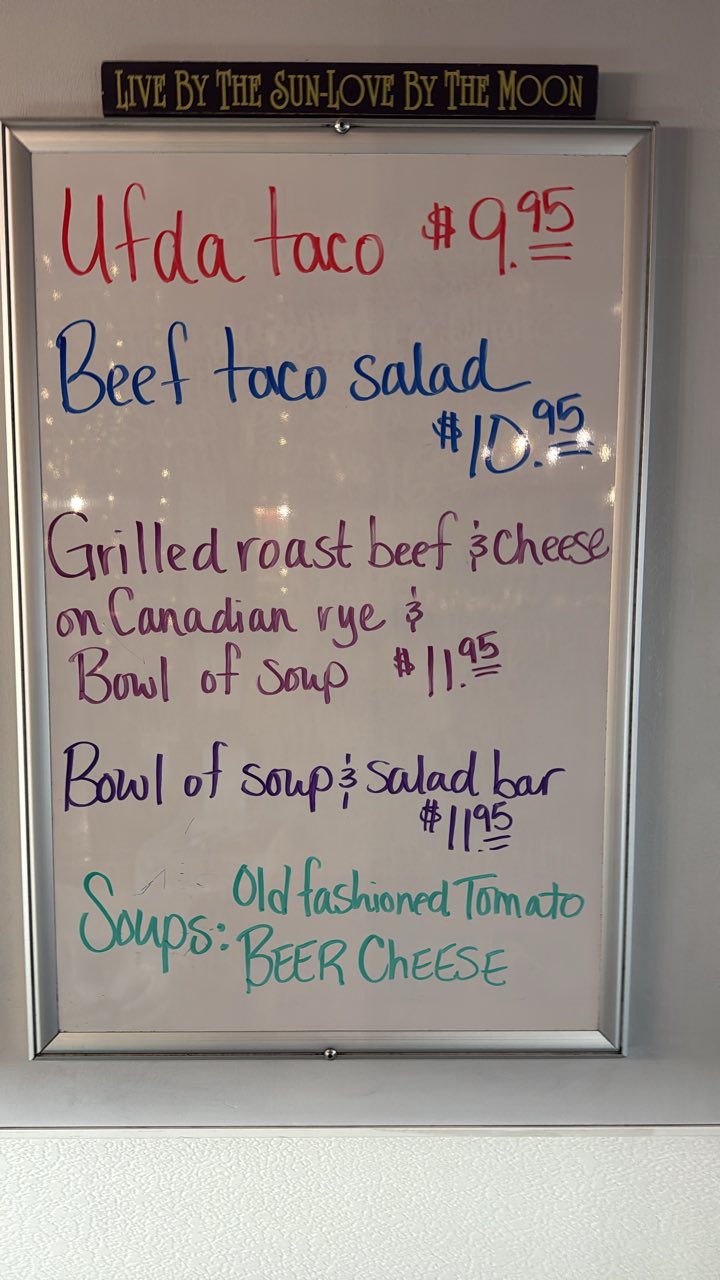 LIVE BY THE SUN-LOVE BY THE MOON
Ufda taco $9.95
Beef taco salad
$10.95
Grilled roast beef & cheese
on Canadian rye &
Bowl of soup $11.95
Bowl of soup & salad bar
$11.95
Soups: Old fashioned Tomato
BEER ChEESE